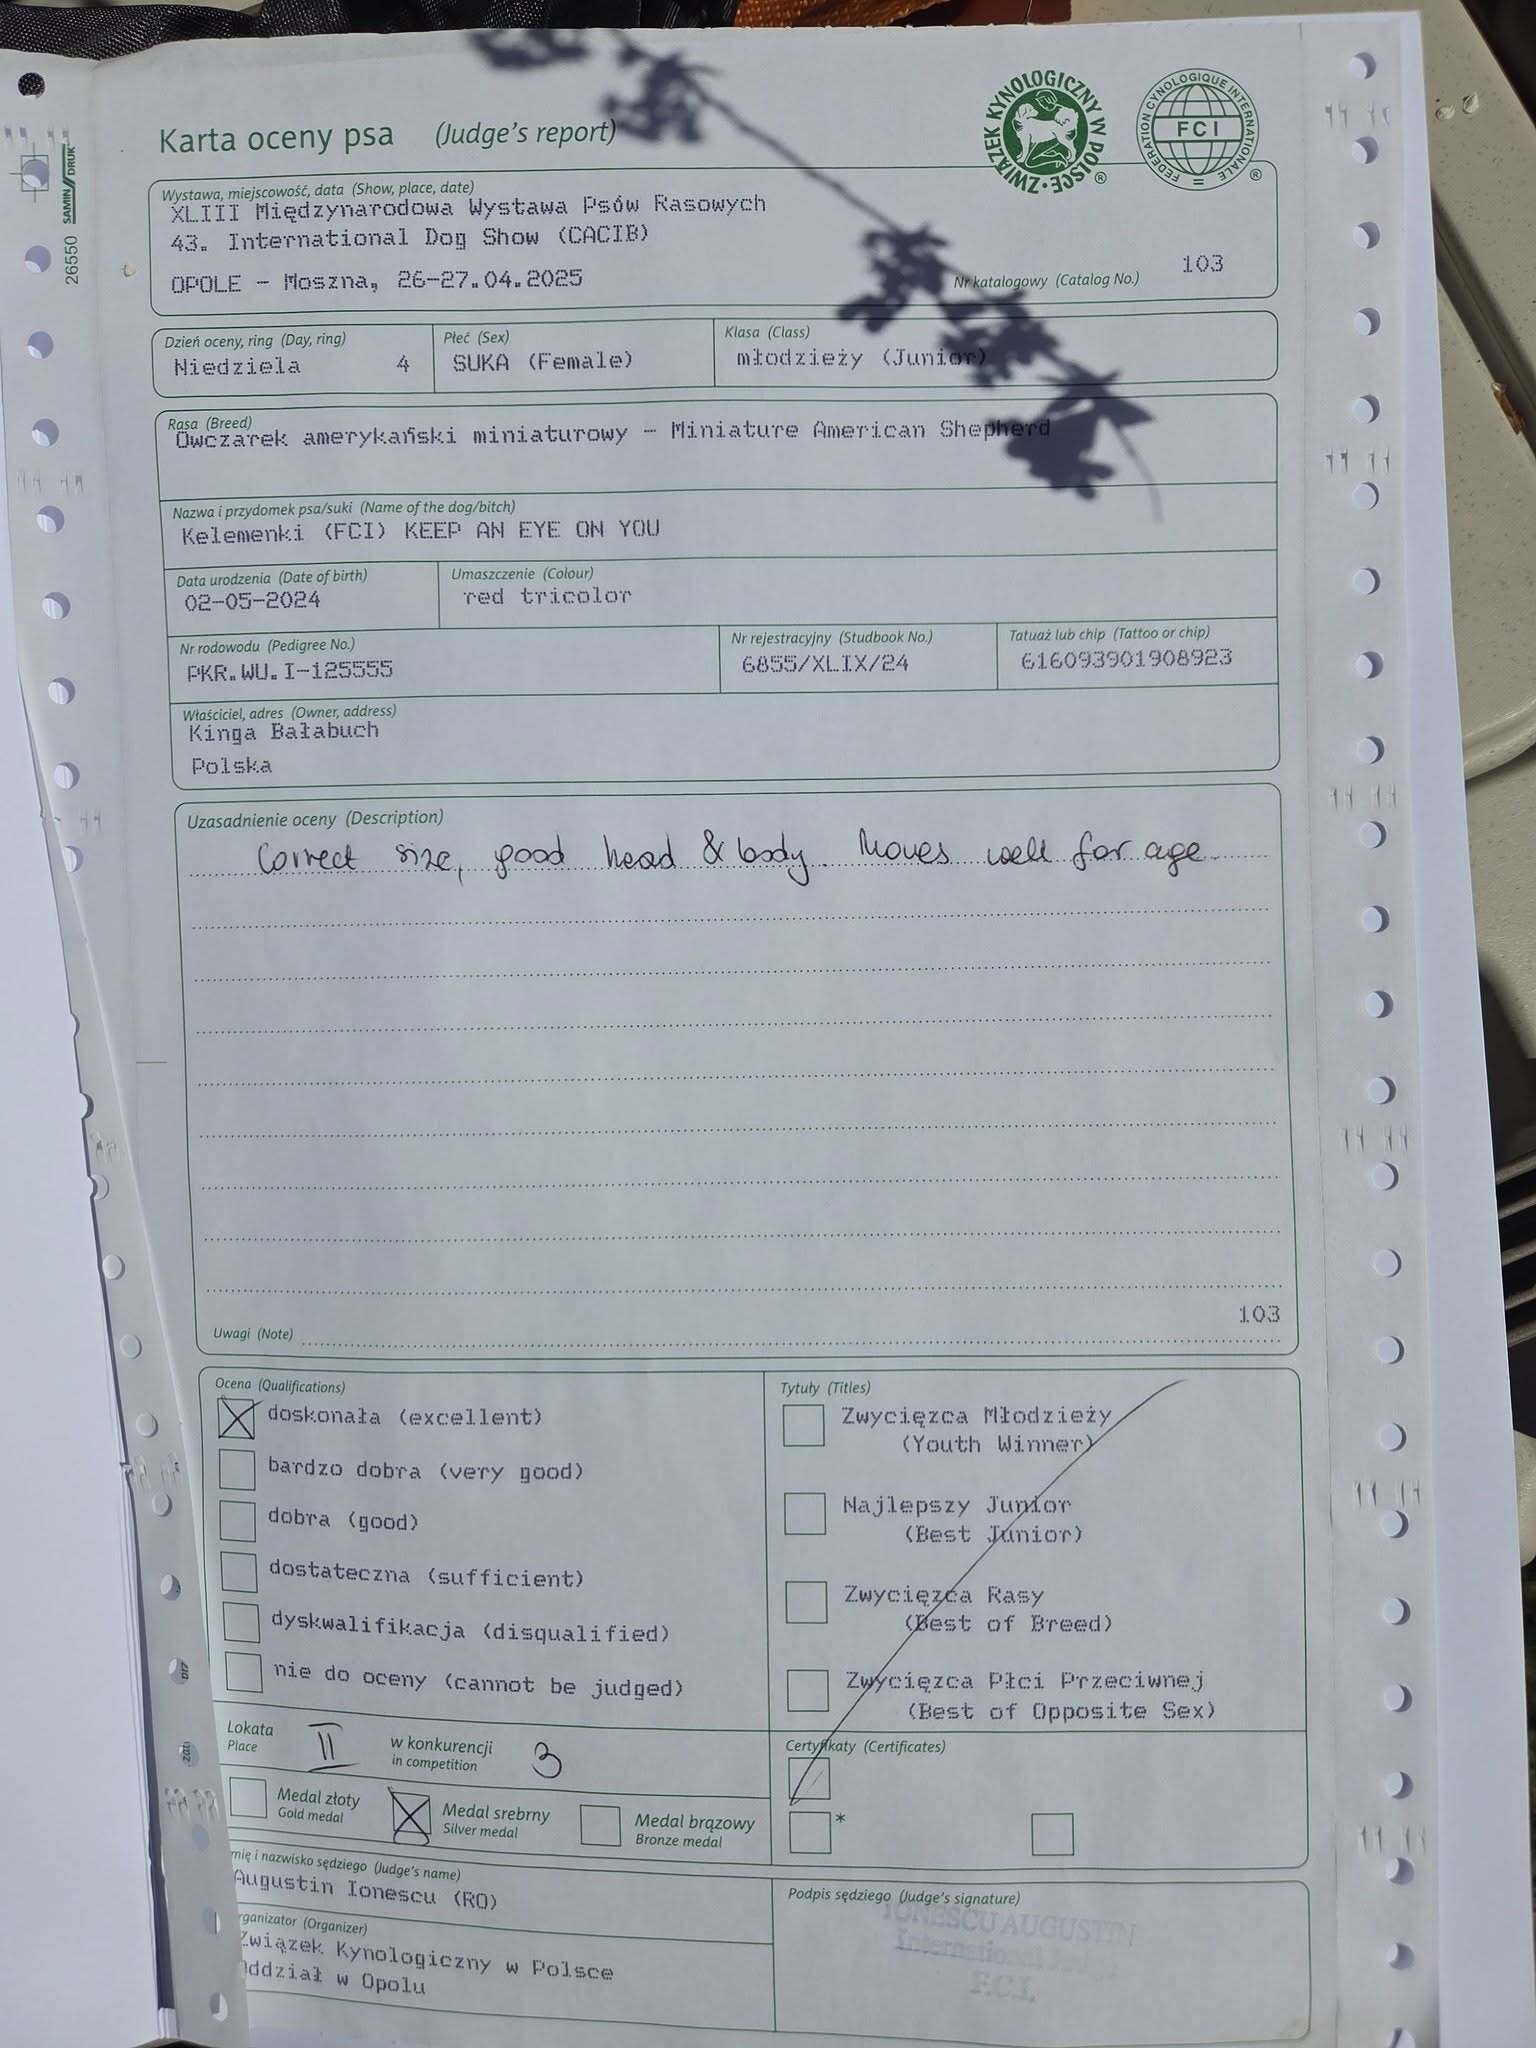 26550 SAMIN DRUK
Karta oceny psa (Judge's report)
ZWIĄZEK KYNOLOGICZNY W POLSCE ®
FEDERATION CYNOLOGIQUE INTERNATIONALE ®
FCI
Wystawa, miejscowość, data (Show, place, date)
XLIII Międzynarodowa Wystawa Psów Rasowych
43. International Dog Show (CACIB)
OPOLE - Moszna, 26-27.04.2025
Nr katalogowy (Catalog No.) 103
Dzień oceny, ring (Day, ring) Płeć (Sex) Klasa (Class)
Niedziela 4 SUKA (Female) młodzieży (Junior)
Rasa (Breed)
Owczarek amerykański miniaturowy - Miniature American Shepherd
Nazwa i przydomek psa/suki (Name of the dog/bitch)
Kelemenki (FCI) KEEP AN EYE ON YOU
Data urodzenia (Date of birth) Umaszczenie (Colour)
02-05-2024 red tricolor
Nr rodowodu (Pedigree No.) Nr rejestracyjny (Studbook No.) Tatuaż lub chip (Tattoo or chip)
PKR.WU.I-125555 6855/XLIX/24 616093901908923
Właściciel, adres (Owner, address)
Kinga Bałabuch
Polska
Uzasadnienie oceny (Description)
Correct size, good head & body. Moves well for age
103
Uwagi (Note)
Ocena (Qualifications)
doskonała (excellent)
bardzo dobra (very good)
dobra (good)
dostateczna (sufficient)
dyskwalifikacja (disqualified)
nie do oceny (cannot be judged)
Tytuły (Titles)
Zwycięzca Młodzieży
(Youth Winner)
Najlepszy Junior
(Best Junior)
Zwycięzca Rasy
(Best of Breed)
Zwycięzca Płci Przeciwnej
(Best of Opposite Sex)
Lokata II w konkurencji 3
Place in competition
Medal złoty Medal srebrny Medal brązowy
Gold medal Silver medal Bronze medal
Certyfikaty (Certificates)
*
mię i nazwisko sędziego (Judge's name)
Augustin Ionescu (RO)
rganizator (Organizer)
Związek Kynologiczny w Polsce
Oddział w Opolu
Podpis sędziego (Judge's signature)
IONESCU AUGUSTIN
International
F.C.I.